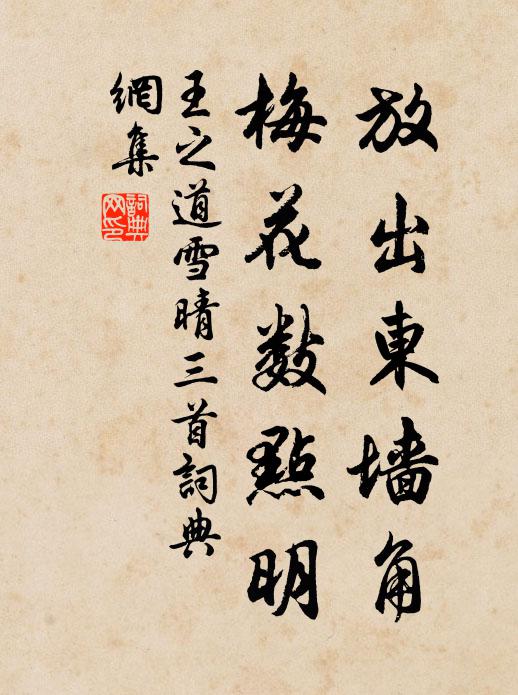 放出東墙角
梅花数點明
王之道雪晴三首詞典
網集
詞典
网印